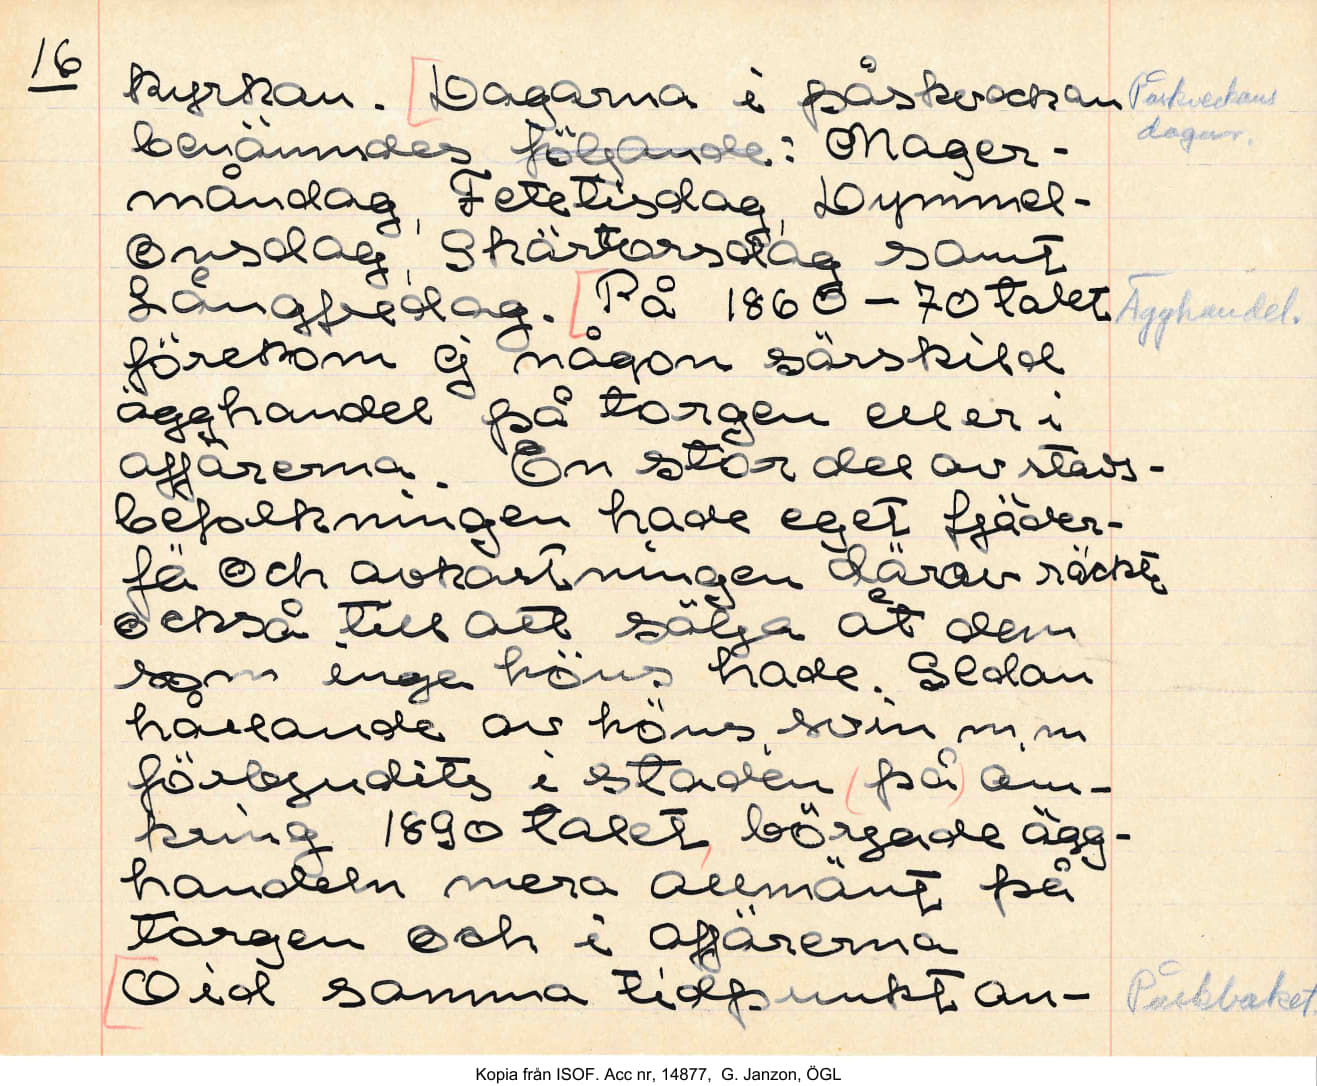 16
kyrkan. Dagarna i påskveckan
Påskveckans
dagar.
benämndes följande: Mager-
måndag, Fetetisdag, Dymmel-
onsdag, Skärtorsdag samt
Långfredag. På 1860-70 talet
Ägghandel.
förekom ej någon särskild
ägghandel på torgen eller i
affärerna. En stor del av stads-
befolkningen hade eget fjäder-
fä och avkastningen därav räckte
också till att sälja åt dem
som inga höns hade. Sedan
hållande av höns, svin m.m
förbjudits i staden (på) om-
kring 1890 talet, började ägg-
handeln mera allmänt på
torgen och i affärerna
Vid samma tidpunkt an-
Påskbaket.
Kopia från ISOF. Acc nr, 14877, G. Janzon, ÖGL